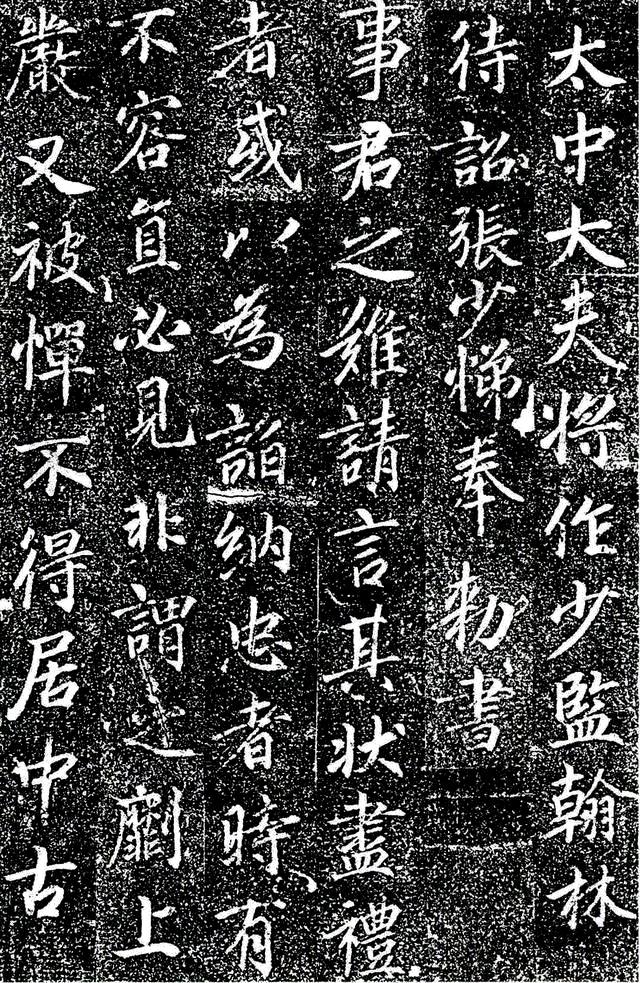 太中大夫将作少監翰林
待詔張少悌奉勑書
事君之難請言其狀盡禮
者或以為諂納忠者時有
不容直必見非謂之劘上
嚴又被憚不得居中古